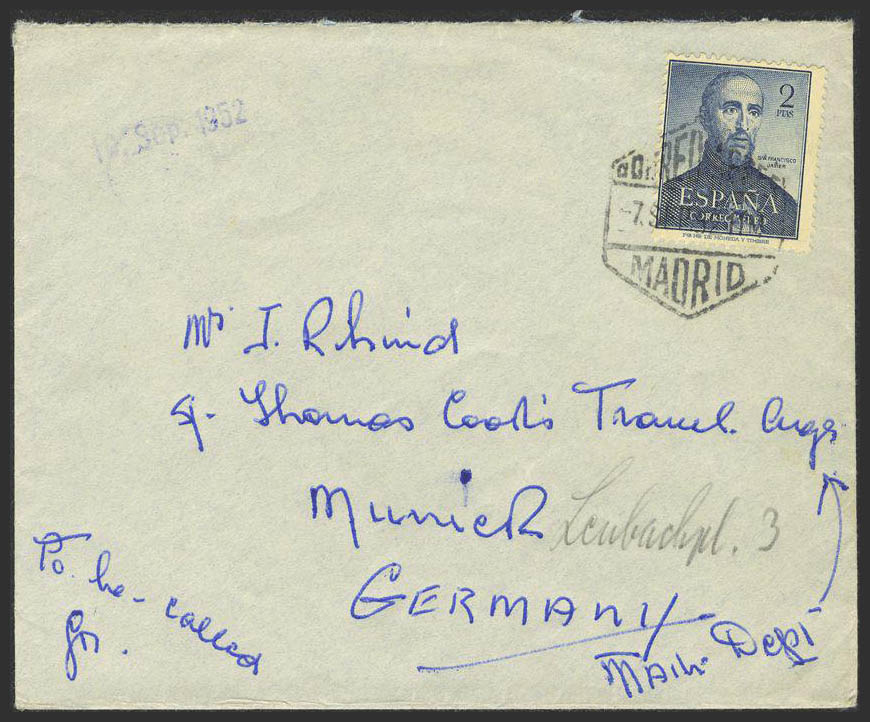 10. Sep. 1952
2
PTAS
SAN FRANCISCO
JAVIER
ESPAÑA
CORREO AEREO
FABNL DE MONEDA Y TIMBRE
CORREO
-7.S
MADRID
Mrs I. Rhind
c/- Thomas Cook's Travel. Angs
Munich Lenbachpl. 3
GERMANY
To be-called
for.
Mail Dept